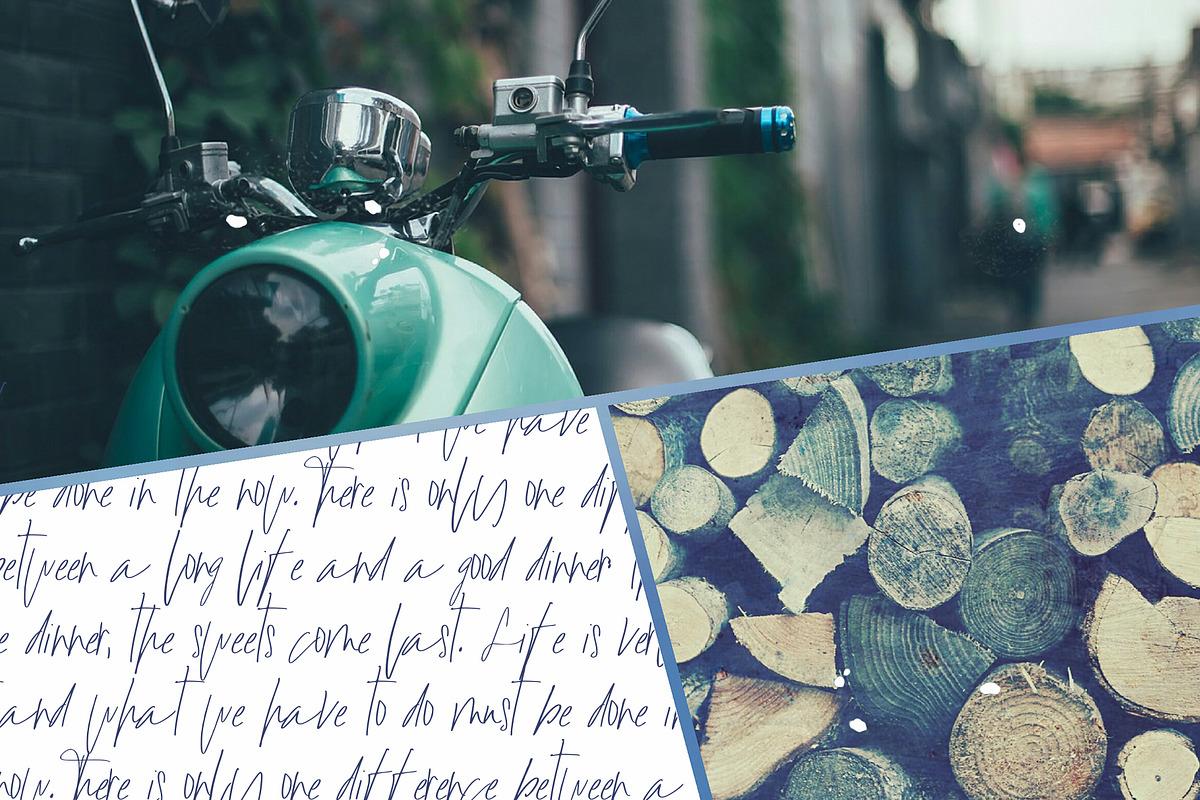 have
be done in the now. There is only one dif
between a long life and a good dinner
dinner, the sweets come last. Life is ver
and what we have to do must be done in
now. There is only one difference between a